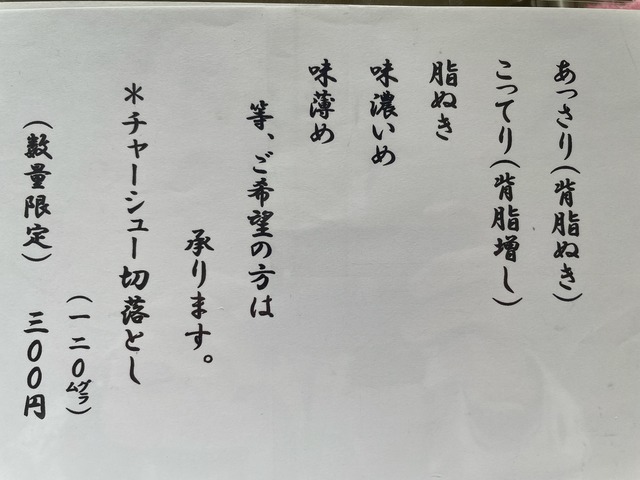 あっさり（背脂ぬき）
こってり（背脂増し）
脂ぬき
味濃いめ
味薄め
等、ご希望の方は
承ります。
＊チャーシュー切落とし
（一二０㌘）
（数量限定）　三００円